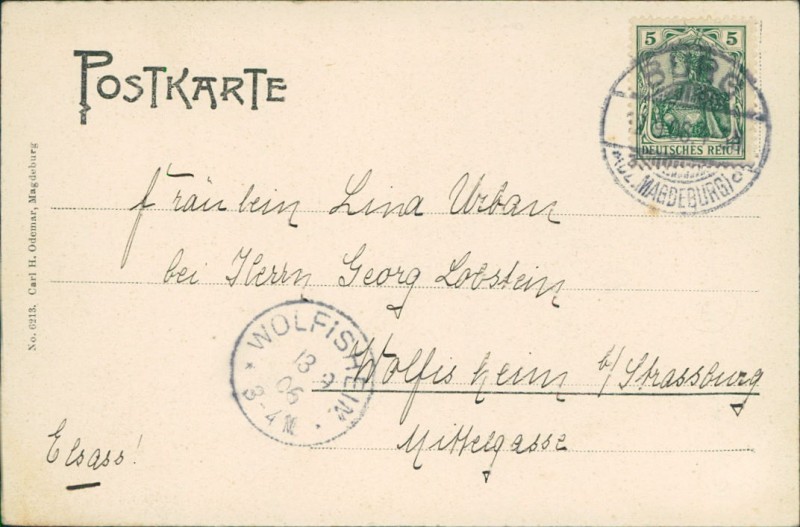 POSTKARTE
5 5
DEUTSCHES REICH
BURG
(BZ. MAGDEBURG)
Fräulein Lina Urban
bei Herrn Georg Lobstein
Wolfisheim b/Strassburg
Mittelgasse
Elsass!
WOLFISHEIM
13 9
06
3-4 N
No. 6213. Carl H. Odemar, Magdeburg